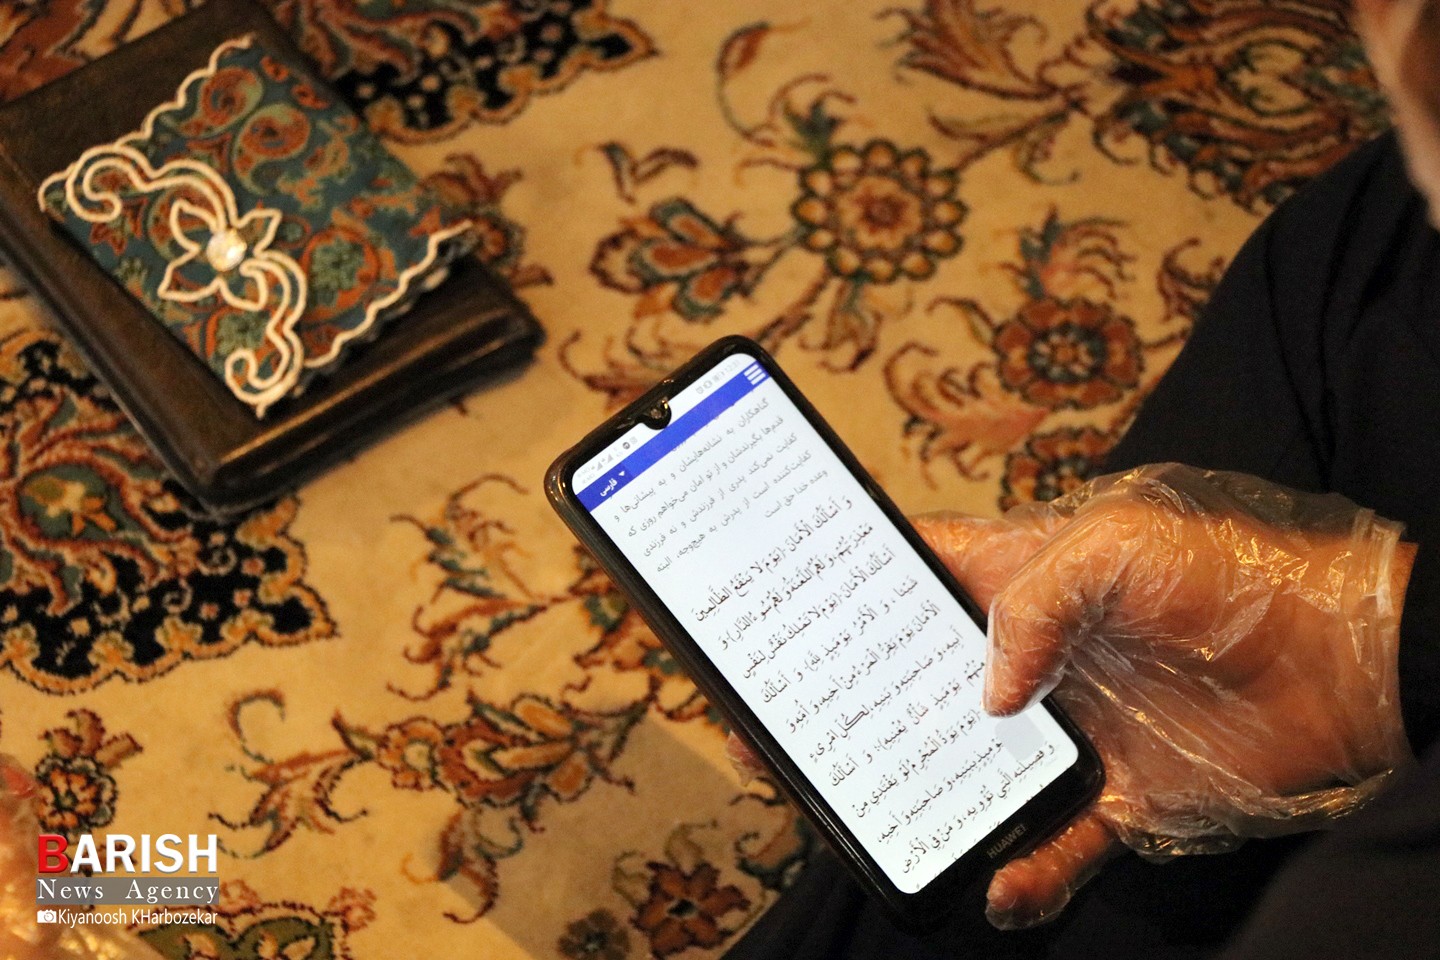 فارسی
گناهکاران به نشانه‌هایشان و به پیشانی‌ها و
قدم‌ها بگیرندشان و از تو امان می‌خواهم روزی که
کفایت نمی‌کند پدری از فرزندش و نه فرزندی
کفایت‌کننده است از پدرش به هیچ‌وجه، البته
وعده خدا حق است
وَ أَسْأَلُكَ الْأَمَانَ (يَوْمَ لَا يَنْفَعُ الظَّالِمِينَ
مَعْذِرَتُهُمْ، وَ لَهُمُ اللَّعْنَةُ وَ لَهُمْ سُوءُ الدَّارِ) وَ
أَسْأَلُكَ الْأَمَانَ (يَوْمَ لَا تَمْلِكُ نَفْسٌ لِنَفْسٍ
شَيْئا ، وَ الْأَمْرُ يَوْمَئِذٍ لِلَّهِ)، وَ أَسْأَلُكَ
الْأَمَانَ يَوْمَ يَفِرُّ الْمَرْءُ مِنْ أَخِيهِ، وَ أُمِّهِ وَ
أَبِيهِ، وَ صَاحِبَتِهِ وَ بَنِيهِ، لِكُلِّ امْرِئٍ
مِنْهُمْ يَوْمَئِذٍ شَأْنٌ يُغْنِيهِ)، وَ أَسْأَلُكَ
(يَوْمَ يَوَدُّ الْمُجْرِمُ لَوْ يَفْتَدِي مِنْ
يَوْمِئِذٍ بِبَنِيهِ، وَ صَاحِبَتِهِ وَ أَخِيهِ،
وَ فَصِيلَتِهِ الَّتِي تُؤْوِيهِ، وَ مَنْ فِي الْأَرْضِ
HUAWEI
BARISH
News Agency
Kiyanoosh KHarbozekar